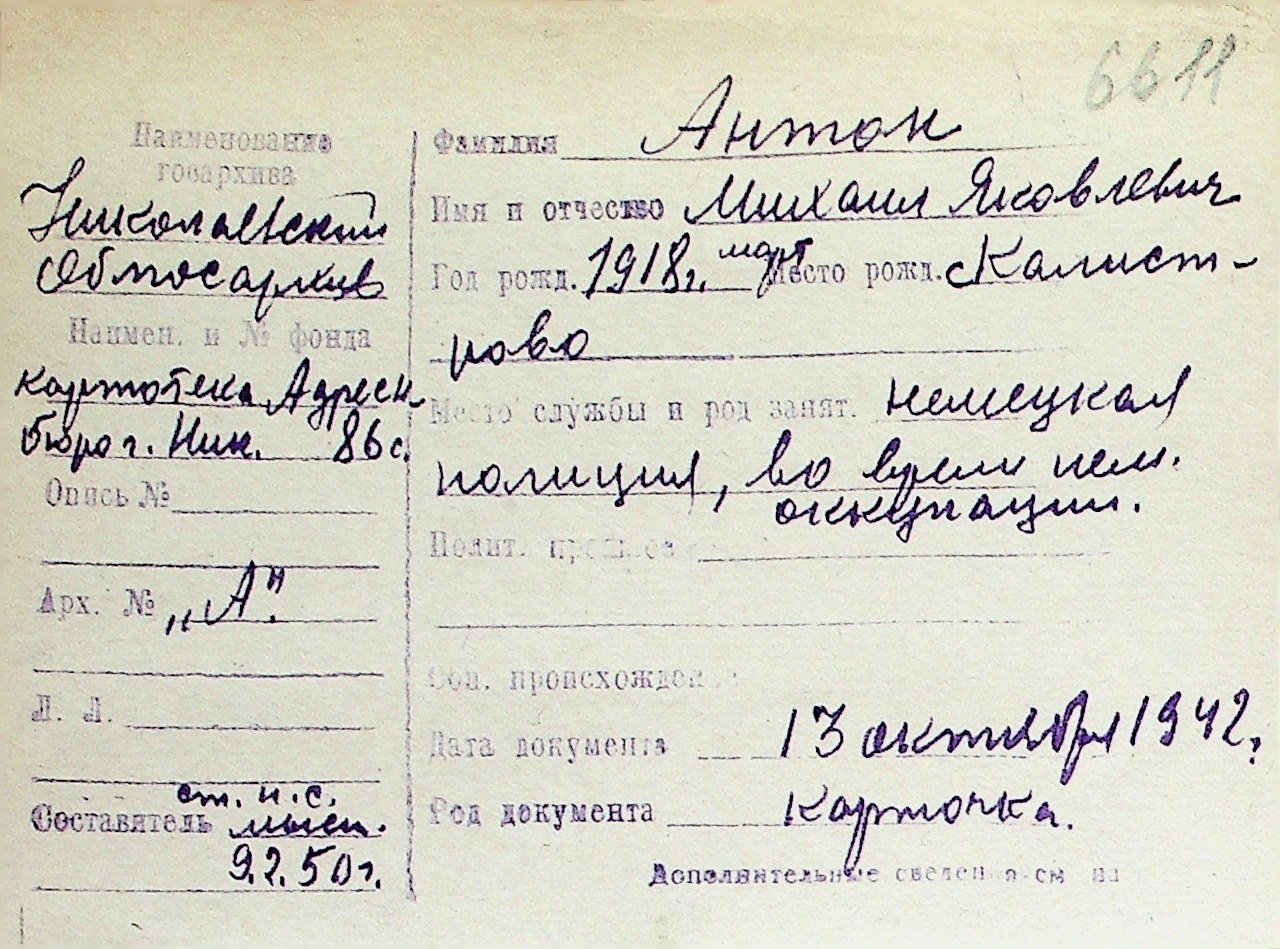 6611
Наименование
госархива
Николаевский
Облгосархив
Наимен. и № фонда
картотека Адресн.
бюро г. Ник. 86 с.
Опись №
Арх. № „А".
Л. Л.
ст. н.с.
Составитель
9.2.50 г.
Фамилия Антон
Имя и отчество Михаил Яковлевич
Год рожд. 1918 г. март Место рожд. с Калист-
рово
Место службы и род занят. немецкая
полиция, во время нем.
оккупации.
Полит. прошлое
Соц. происхождение
Дата документа 13 октября 1942.
Род документа карточка.
Дополнительные сведения см на